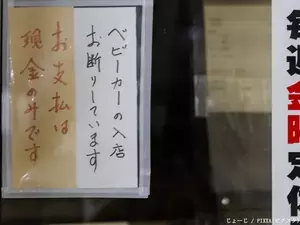 ベビーカーの入店
お断りしています
お支払は
現金のみです
毎週金曜定休
じぇーじ / PIXTA